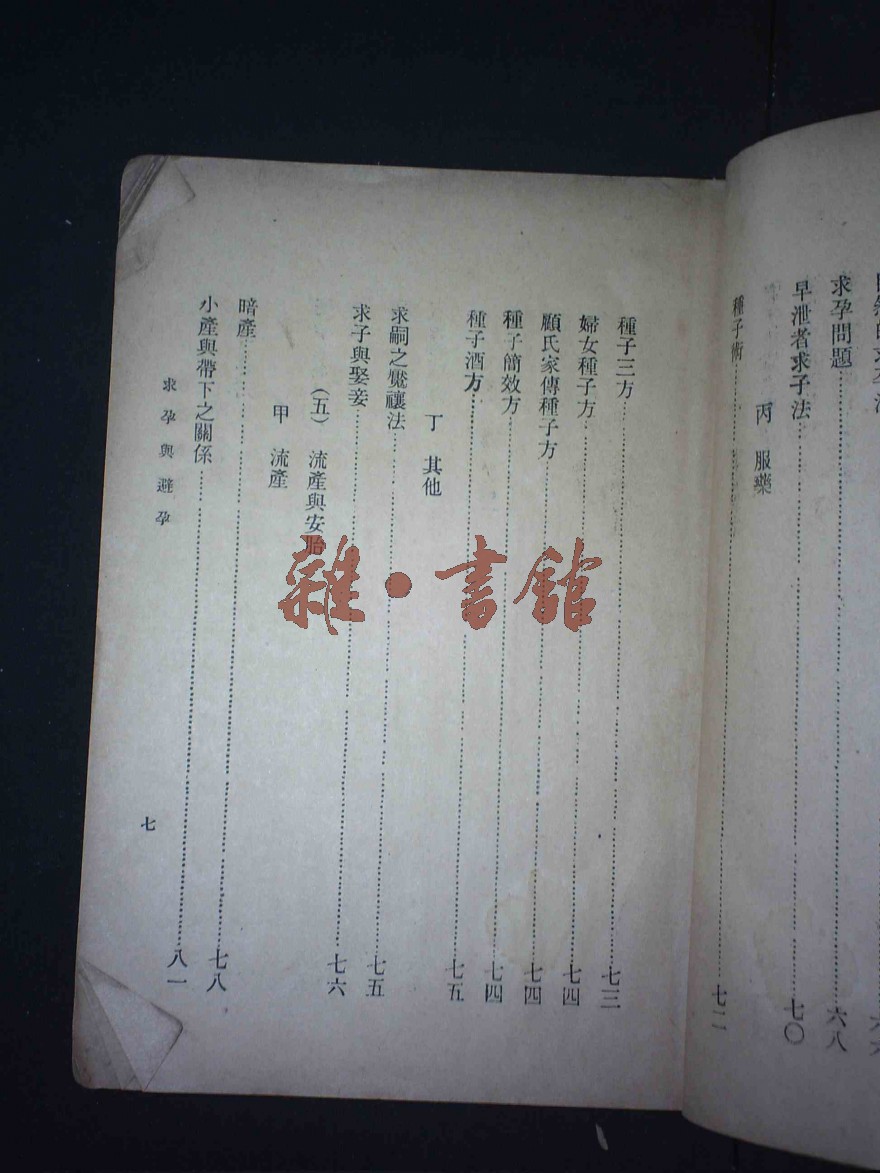 求孕問題……六八
早泄者求子法……七〇
丙 服藥
種子術……七二
種子三方……七三
婦女種子方……七四
顧氏家傳種子方……七四
種子簡效方……七四
種子酒方……七五
丁 其他
求嗣之魘禳法……七五
求子與娶妾……七六
(五) 流產與安胎
甲 流產
暗產……七八
小產與帶下之關係……八一
求孕與避孕
七
雜·書館